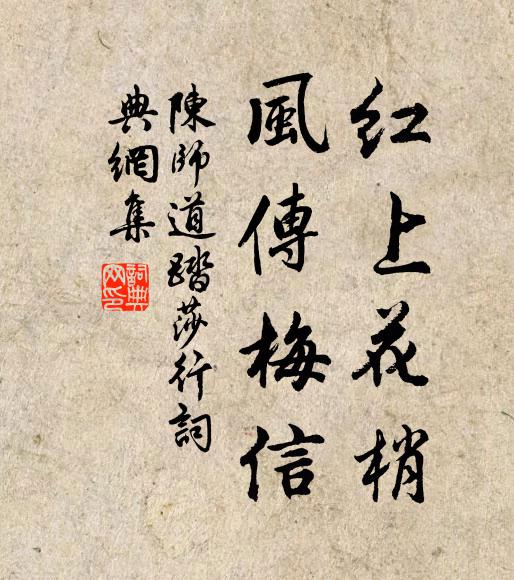 红上花梢
風傳梅信
陳師道踏莎行詞
典網集
詞典
网印